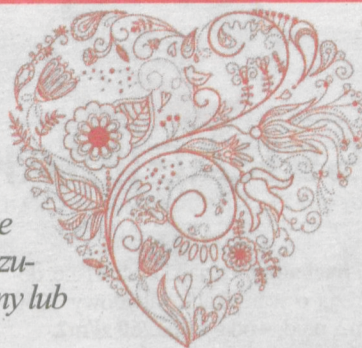 e
zu-
ny lub